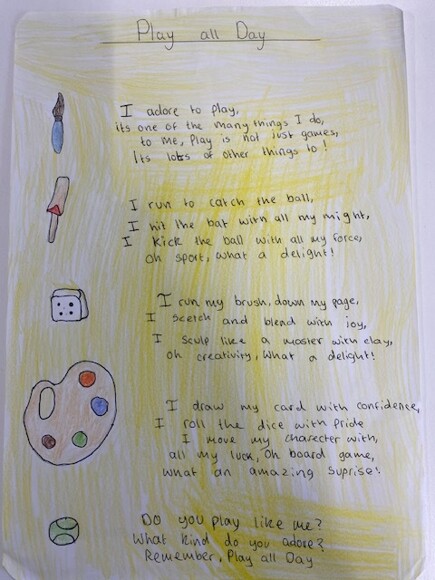 Play all Day
I adore to play,
its one of the many things I do,
to me, Play is not just games,
Its lots of other things to!
I run to catch the ball,
I hit the bat with all my might,
I kick the ball with all my force,
Oh sport, what a delight!
I run my brush, down my page,
I scetch and blend with joy,
I sculp like a master with clay,
Oh creativity, What a delight!
I draw my card with confidence,
I roll the dice with pride
I move my character with,
all my luck, Oh board game,
What an amazing suprise!
Do you play like me?
What kind do you adore?
Remember, Play all Day